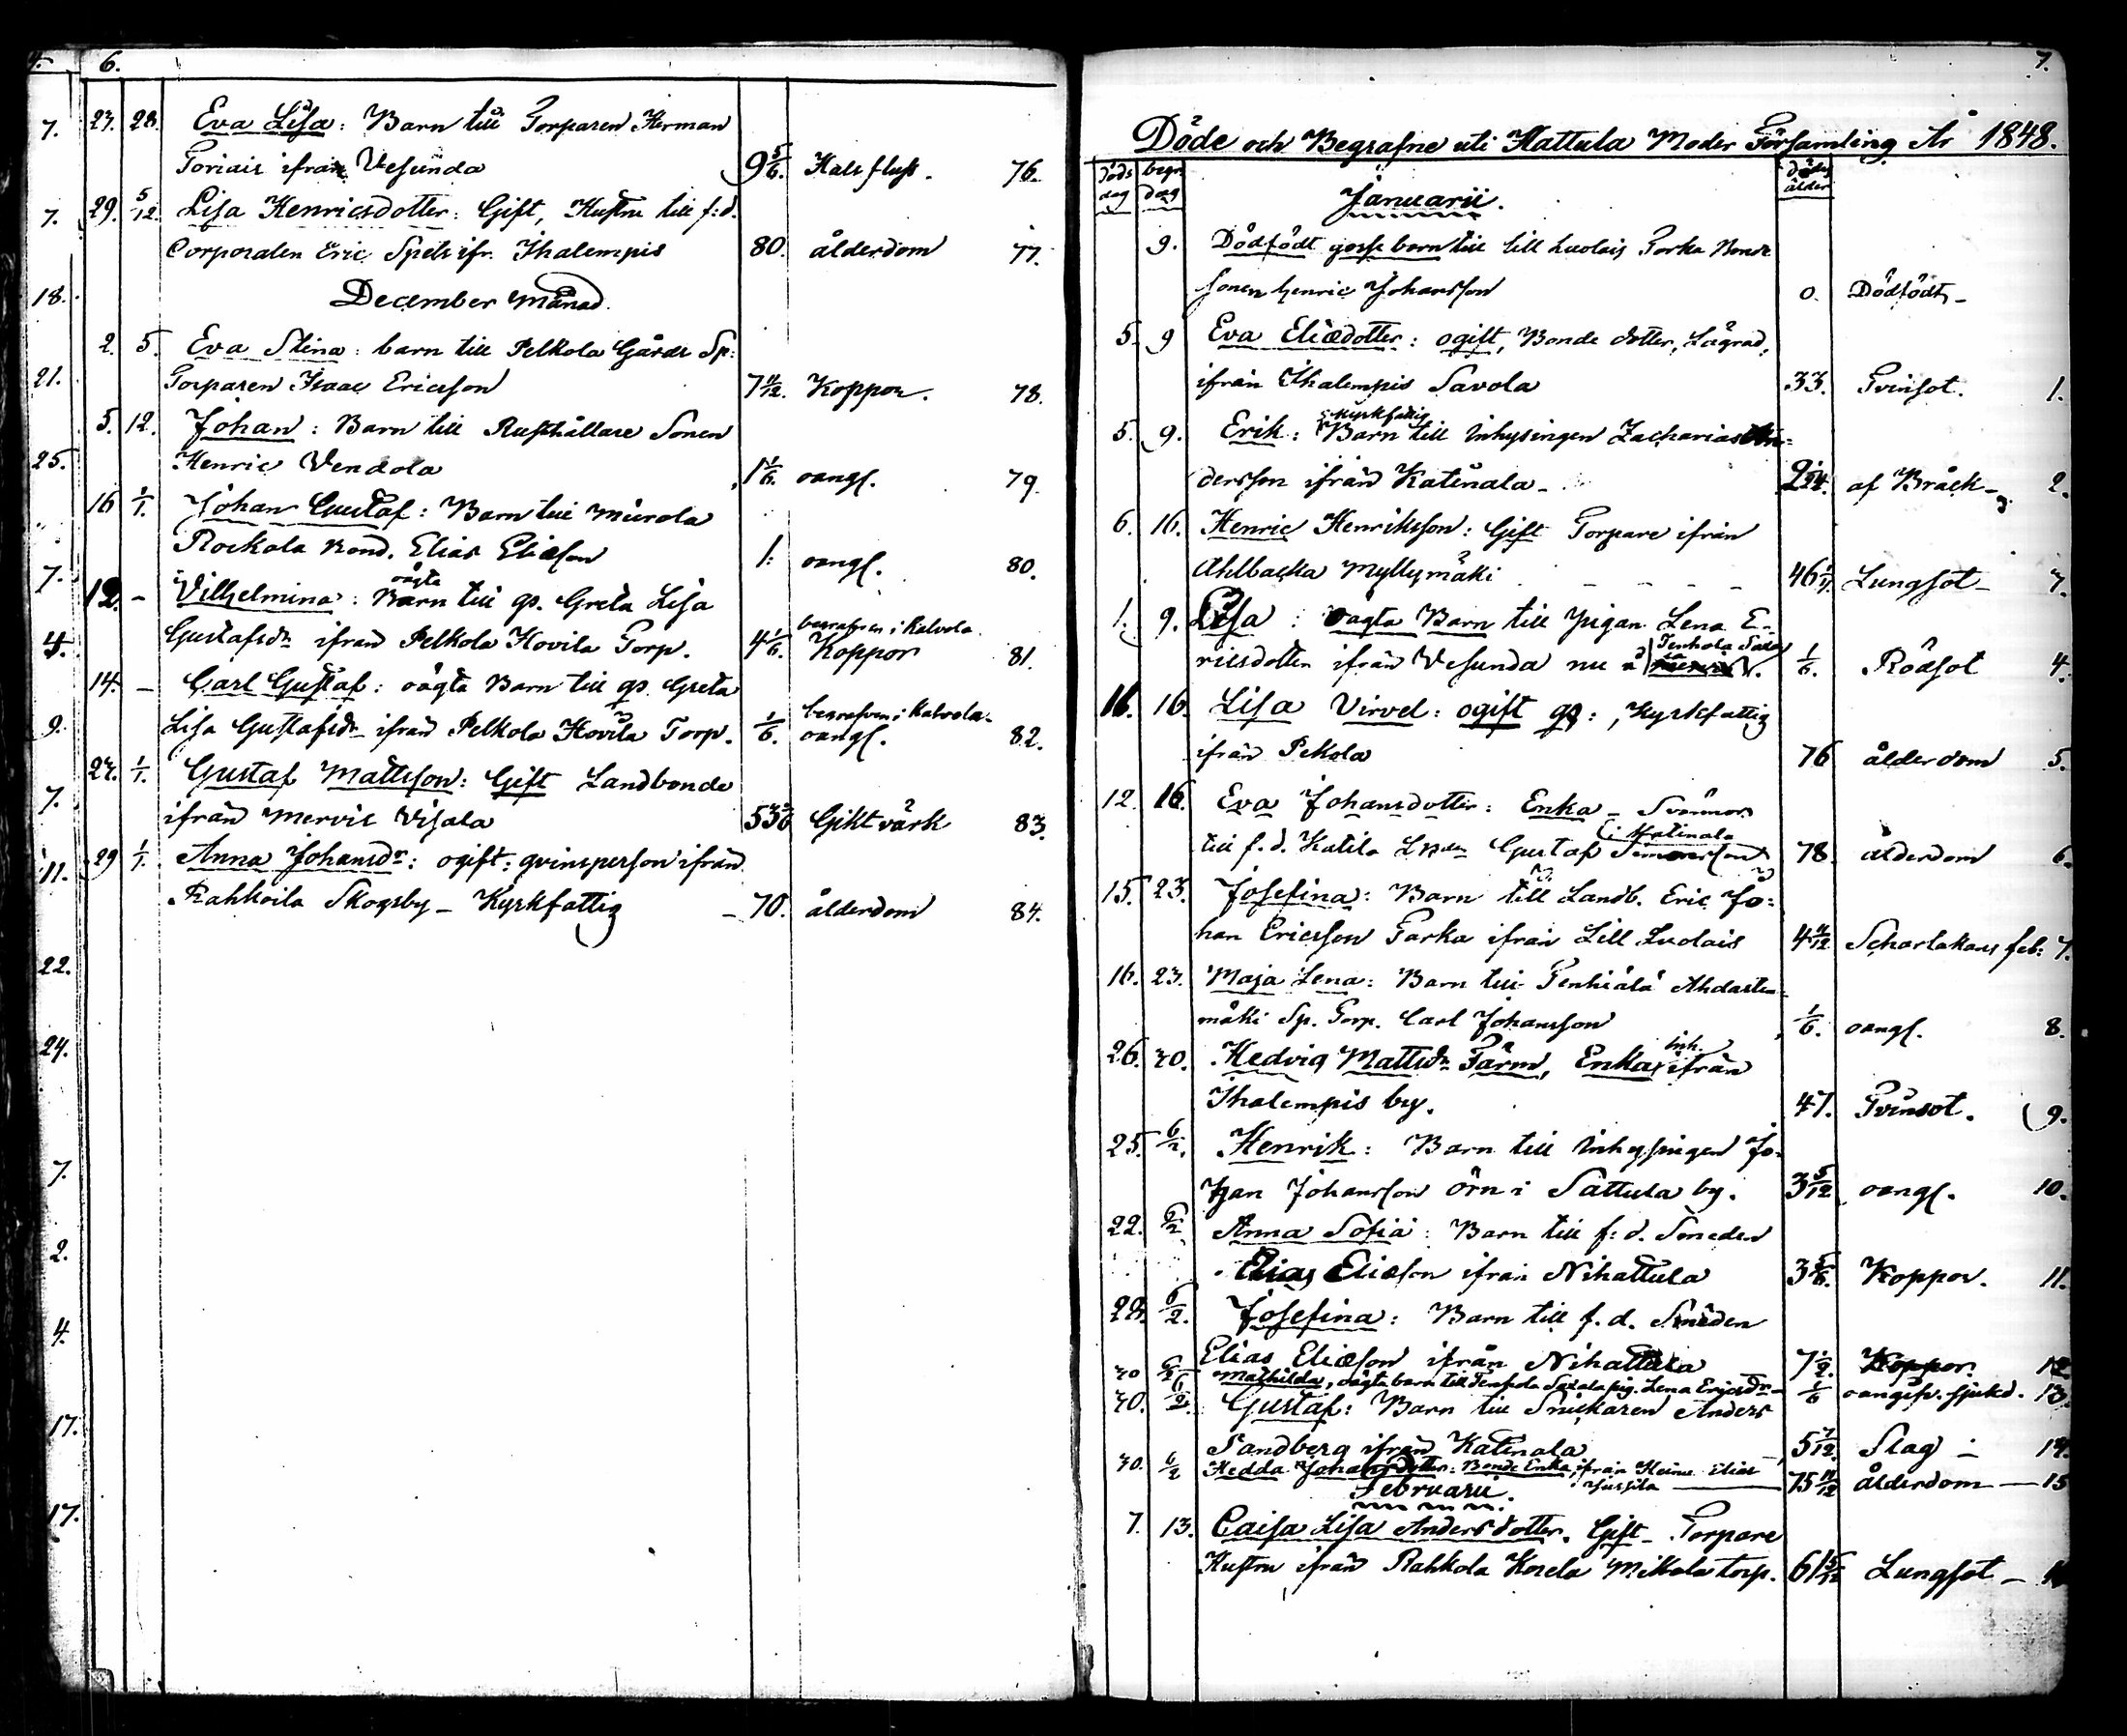 6.
27. 28. Eva Lisa: Barn till Torparen Herman
ifrån Vesunda 9 5/6. Halsfluss. 76.
29. 5/12. Lisa Henricsdotter: Gift, Hustru till f:d.
Corporalen Eric Spets ifr. Ihalempis 80. ålderdom 77.
December Månad.
2. 5. Eva Stina: barn till Pelkola Gårds Sp:
Torparen Isaac Ericsson 7 Koppor. 78.
5. 12. Johan: Barn till Rusthållare Sonen
Henric Vendola 1 1/6. oangf. 79.
16 1/1. Johan Gustaf: Barn till Mierola
Rockola Bond. Elias Eliæson 1. oangf. 80.
oägta
12. – Vilhelmina: Barn till qp. Greta Lisa
begrafven i Kalvola.
Gustafsdr ifrån Pelkola Hovila Torp. 4 1/6. Koppor 81.
14. – Carl Gustaf: oägta Barn till qp. Greta
begrafven i Kalvola.
Lisa Gustafsdr ifrån Pelkola Hovila Torp. 1/6. oangf. 82.
27. 1/1. Gustaf Mattsson: Gift Landbonde
ifrån Mervis Visala 53 Giktvärk 83.
29 1/1. Anna Johansdr: ogift: qvinsperson ifrån
Rahkoila Skogsby – Kyrkfattig – 70. ålderdom 84.
7.
Döde och Begrafne uti Hattula Moder Församling År 1848.
döds dag begr. dag ålder
Januarii.
9. Dödfödt gosse barn till Lill Luolais Torka Bonde
Sonen Henric Johansson 0. Dödfödt –
5. 9 Eva Eliædotter: ogift, Bonde dotter, Lägrad,
ifrån Ihalempis Savola 33. Tvinsot. 1.
kyrkfattig
5. 9. Erik: Barn till Inhysingen Zacharias An=
dersson ifrån Katinala – af Bråck – 2.
6. 16. Henric Henriksson: Gift Torpare ifrån
Ahlbacka Myllymäki – – – – 46 Lungsot – 3.
1. 9. Lisa: oägta Barn till pigan Lena E=
Tenhola
ricsdotter ifrån Vesunda nu 1/6. Rödsot 4.
16. 16. Lisa Virvel: ogift qp:, Kyrkfattig
ifrån Pekola 76 ålderdom 5.
12. 16. Eva Johansdotter: Enka – Svärmor
i Katinala
till f. d. Katila Gustaf Simonsson 78. ålderdom 6.
15. 23. Josefina: Barn till Landb. Eric Jo=
han Ericsson Tarka ifrån Lill Luolais 4 Scharlakans feb: 7.
16. 23. Maja Lena: Barn till Tenhiälä Ahdasten=
mäki Sp. Torp. Carl Johansson 1/6. oangf. 8.
inh.
26. 30. Hedvig Mattsdr Färm, Enka ifrån
Ihalempis by. 47. Tvinsot. 9.
25. 6/2. Henrik: Barn till Inhysingen Jo=
han Johansson Örn i Sattula by. 3 5/12. oangf. 10.
22. 6/2 Anna Sofia: Barn till f: d. Smeden
Elias Eliæson ifrån Nihattula 3 5/6. Koppor. 11.
22. 6/2. Josefina: Barn till f. d. Smeden
Elias Eliæson ifrån Nihattula 7 1/2. Koppor. 12
30 6/2 Mathilda, oägta barn till Tenhola pig. Lena Ericsdr – 1/6 oangifv. sjukd. 13.
30. 6/2. Gustaf: Barn till Snickaren Anders
Sandberg ifrån Katinala 5 Slag – 14.
30. 6/2 Hedda Johansdotter: Bonde Enka, ifrån 75 11/12 ålderdom – 15
Jussila
Februarii.
7. 13. Caisa Lisa Andersdotter. Gift – Torpare
Hustru ifrån Rahkola Mikola torp. 61 Lungsot –
7.
7.
18.
21.
25.
7.
9.
7.
11.
22.
24.
7.
2.
4.
17.
17.